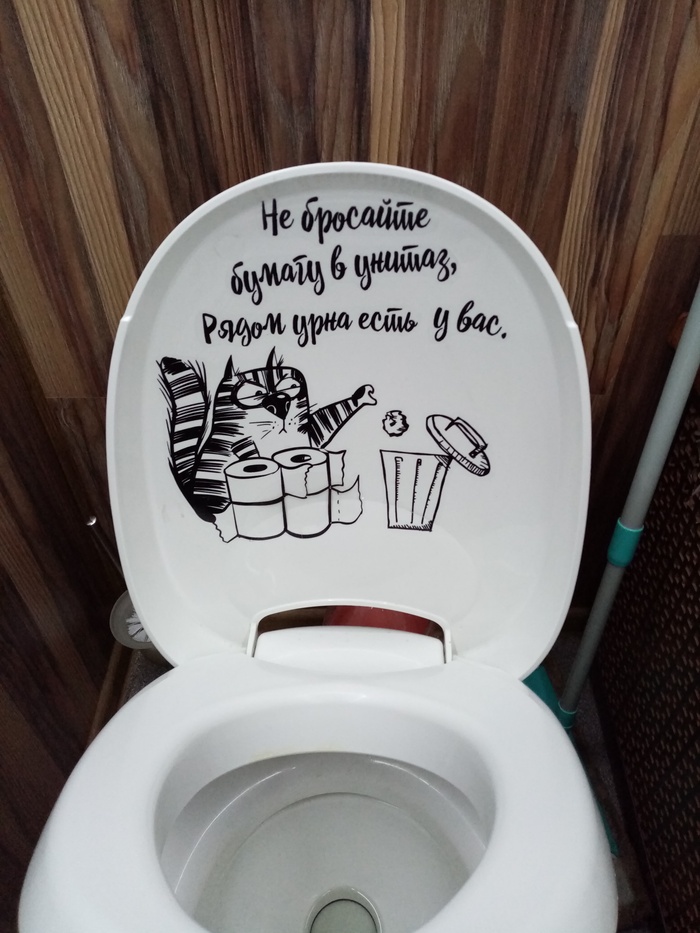 Не бросайте
бумагу в унитаз,
Рядом урна есть у вас.